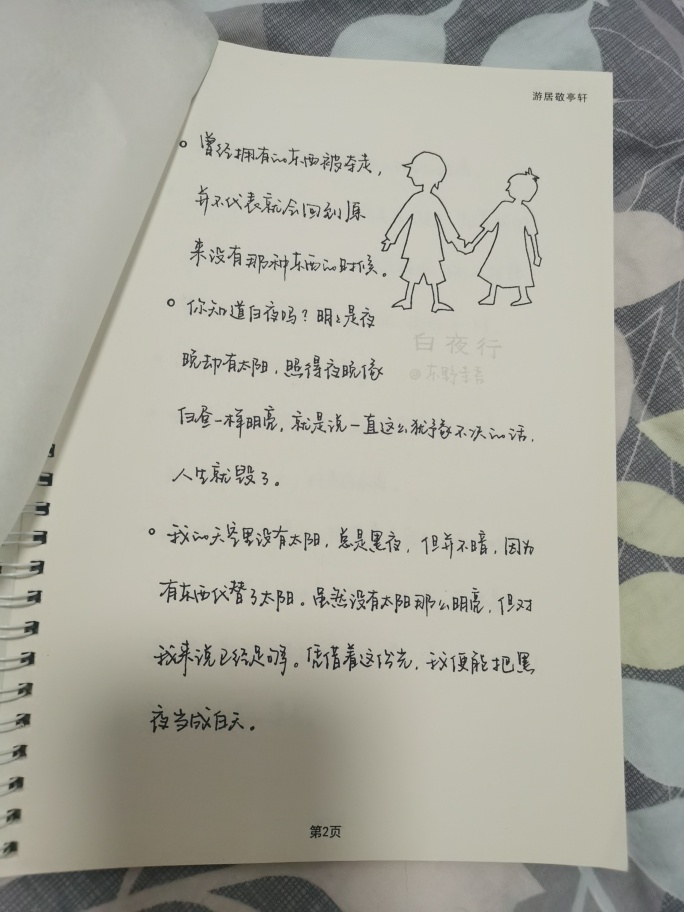 游居敬亭轩
曾经拥有的东西被夺走,
并不代表就会回到原
来没有那种东西的时候。
你知道白夜吗?明明是夜
晚却有太阳,照得夜晚像
白昼一样明亮,就是说一直这么犹豫不决的话,
人生就毁了。
白夜行
@东野圭吾
我的天空里没有太阳,总是黑夜,但并不暗,因为
有东西代替了太阳。虽然没有太阳那么明亮,但对
我来说已经足够。凭借着这份光,我便能把黑
夜当成白天。
第2页